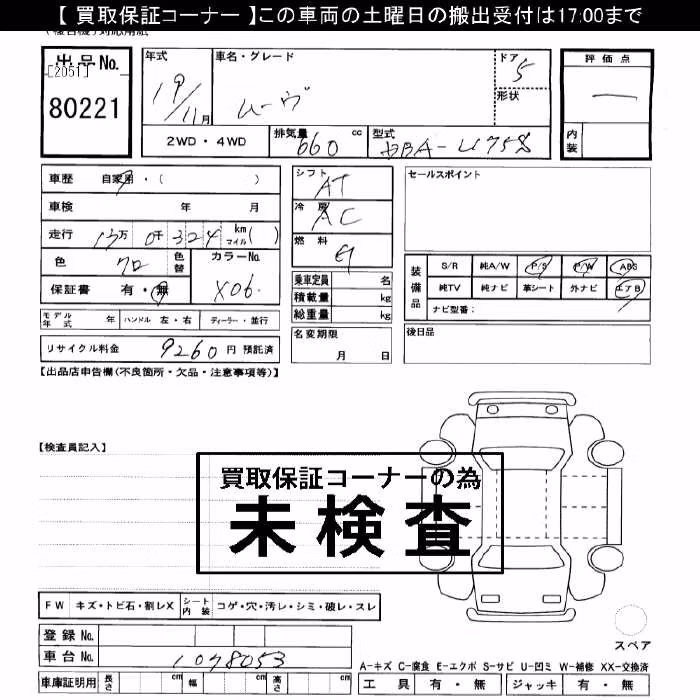 【 買取保証コーナー 】この車両の土曜日の搬出受付は17:00まで
出品No.
[2051]
80221
年式
19/11月
車名・グレード
ムーヴ
ドア
5
形状
評価点
内装
2WD・4WD
排気量
660 cc
型式
車歴 自家用・( )
車検 年 月
走行 13万 0千 324 km マイル( )
色 クロ 色替
カラーNo.
X06
保証書 有・無
シフト AT
冷房 AC
燃料 G
乗車定員 名
積載量 kg
総重量 kg
セールスポイント
装備品
S/R 純A/W P/S P/W ABS
純TV 純ナビ 革シート 外ナビ エアB
ナビ型番:
モデル年式 年 ハンドル 左・右 ディーラー・並行
リサイクル料金 9260 円 預託済
名変期限
月 日
後日品
【出品店申告欄(不良箇所・欠品・注意事項等)】
【検査員記入】
買取保証コーナーの為
未検査
FW キズ・トビ石・割レX シート内装 コゲ・穴・汚レ・シミ・破レ・スレ
登録No.
車台No. 1078053
車庫証明用 長さ cm 幅 cm 高さ cm
スペア
A-キズ C-腐食 E-エクボ S-サビ U-凹ミ W-補修 XX-交換済
工具 有・無 ジャッキ 有・無